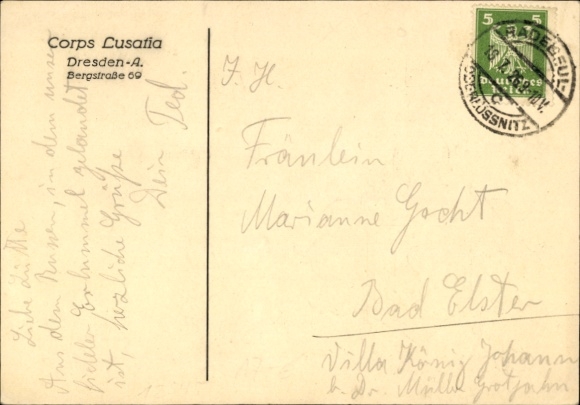 Corps Lusatia
Dresden-A.
Bergstraße 69
Aus dem Busen, in dem unser
gelandet
ist, herzliche Grüße
Dein Ted.
5 5
Deutsches Reich
RADEBEUL-
C
I. H.
Fräulein
Marianne Gocht
Bad Elster
Villa König Johann
b. Dr. Müller Grotjahn